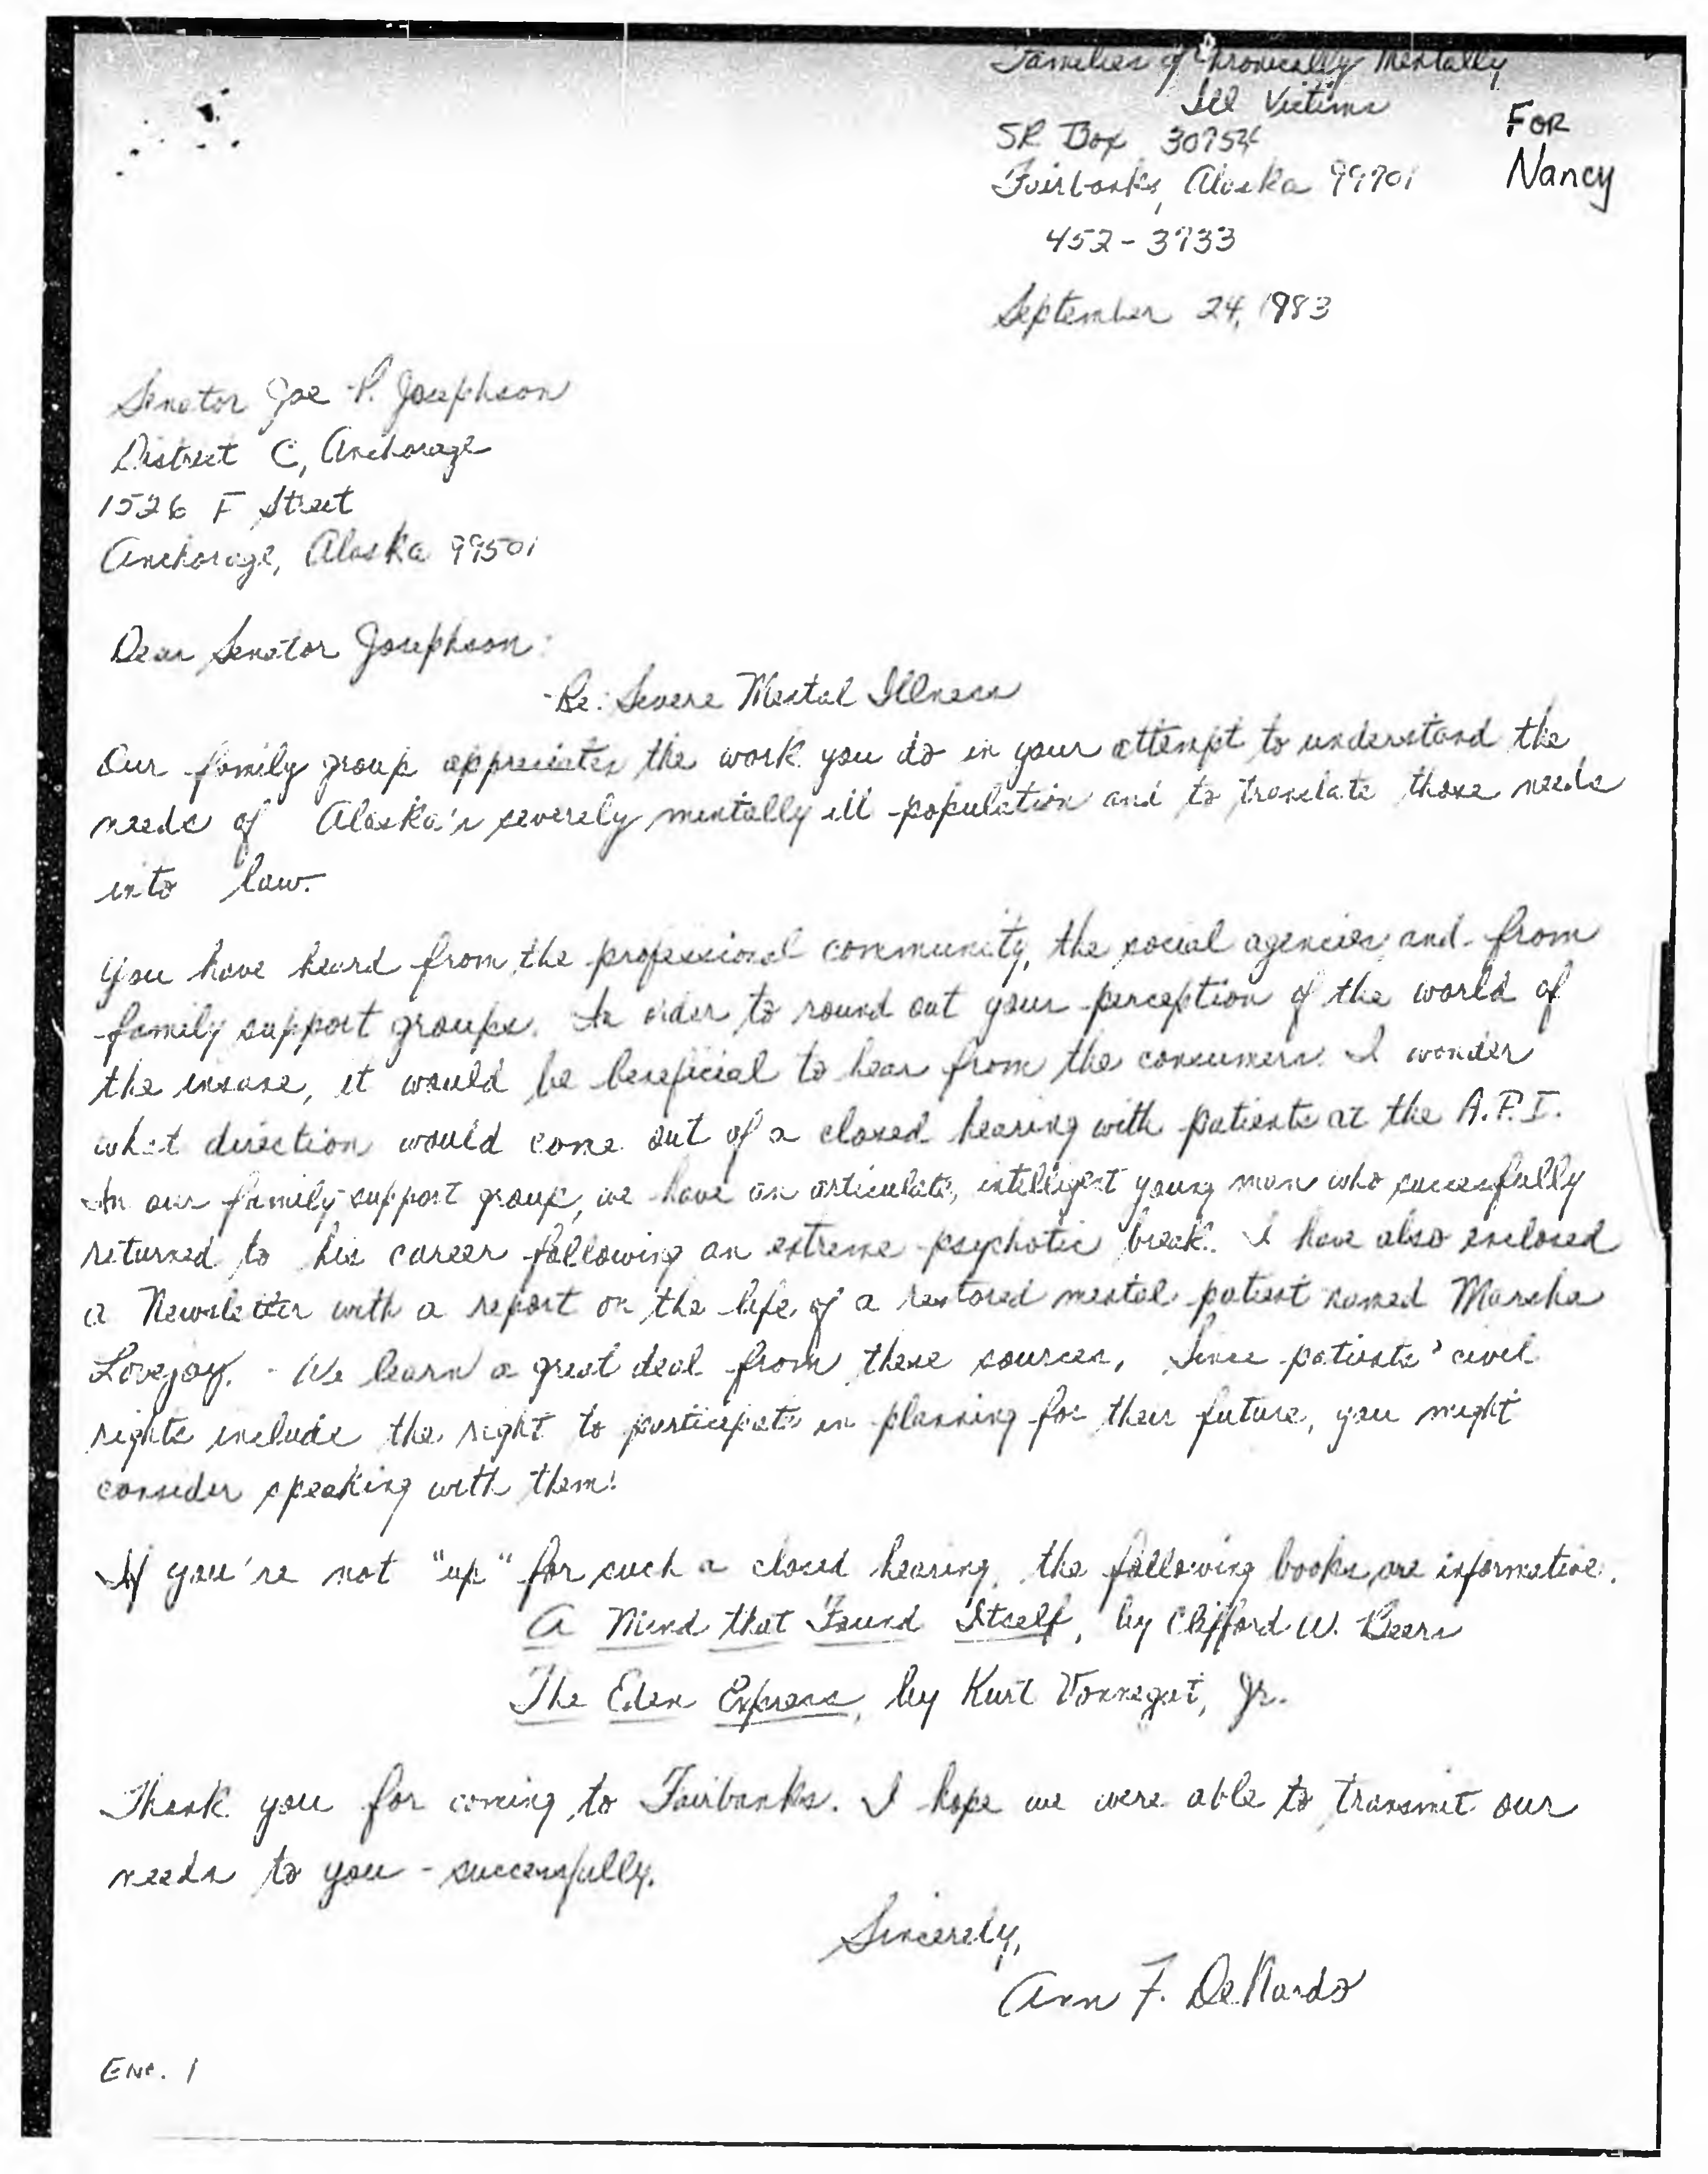 Families of Chronically Mentally
Ill Victims
FOR
Nancy
SR Box 30754
Fairbanks, Alaska 99701
452-3733
September 24, 1983
Senator Joe P. Josephson
District C, Anchorage
1526 F Street
Anchorage, Alaska 99501
Dear Senator Josephson:
Re: Severe Mental Illness
Our family group appreciates the work you do in your attempt to understand the
needs of Alaska's severely mentally ill population and to translate those needs
into law.
You have heard from the professional community, the social agencies, and from
family support groups. In order to round out your perception of the world of
the insane, it would be beneficial to hear from the consumers. I wonder
what direction would come out of a closed hearing with patients at the A.P.I.
In our family support group, we have an articulate, intelligent young man who successfully
returned to his career following an extreme psychotic break. I have also enclosed
a Newsletter with a report on the life of a restored mental patient named Marsha
Lovejoy. We learn a great deal from these sources. Since patients' civil
rights include the right to participate in planning for their future, you might
consider speaking with them!
If you're not "up" for such a closed hearing, the following books are informative.
A Mind that Found Itself, by Clifford W. Beers
The Eden Express, by Kurt Vonnegut, Jr.
Thank you for coming to Fairbanks. I hope we were able to transmit our
needs to you - successfully.
Sincerely,
Ann F. DeNardo
Enc. 1